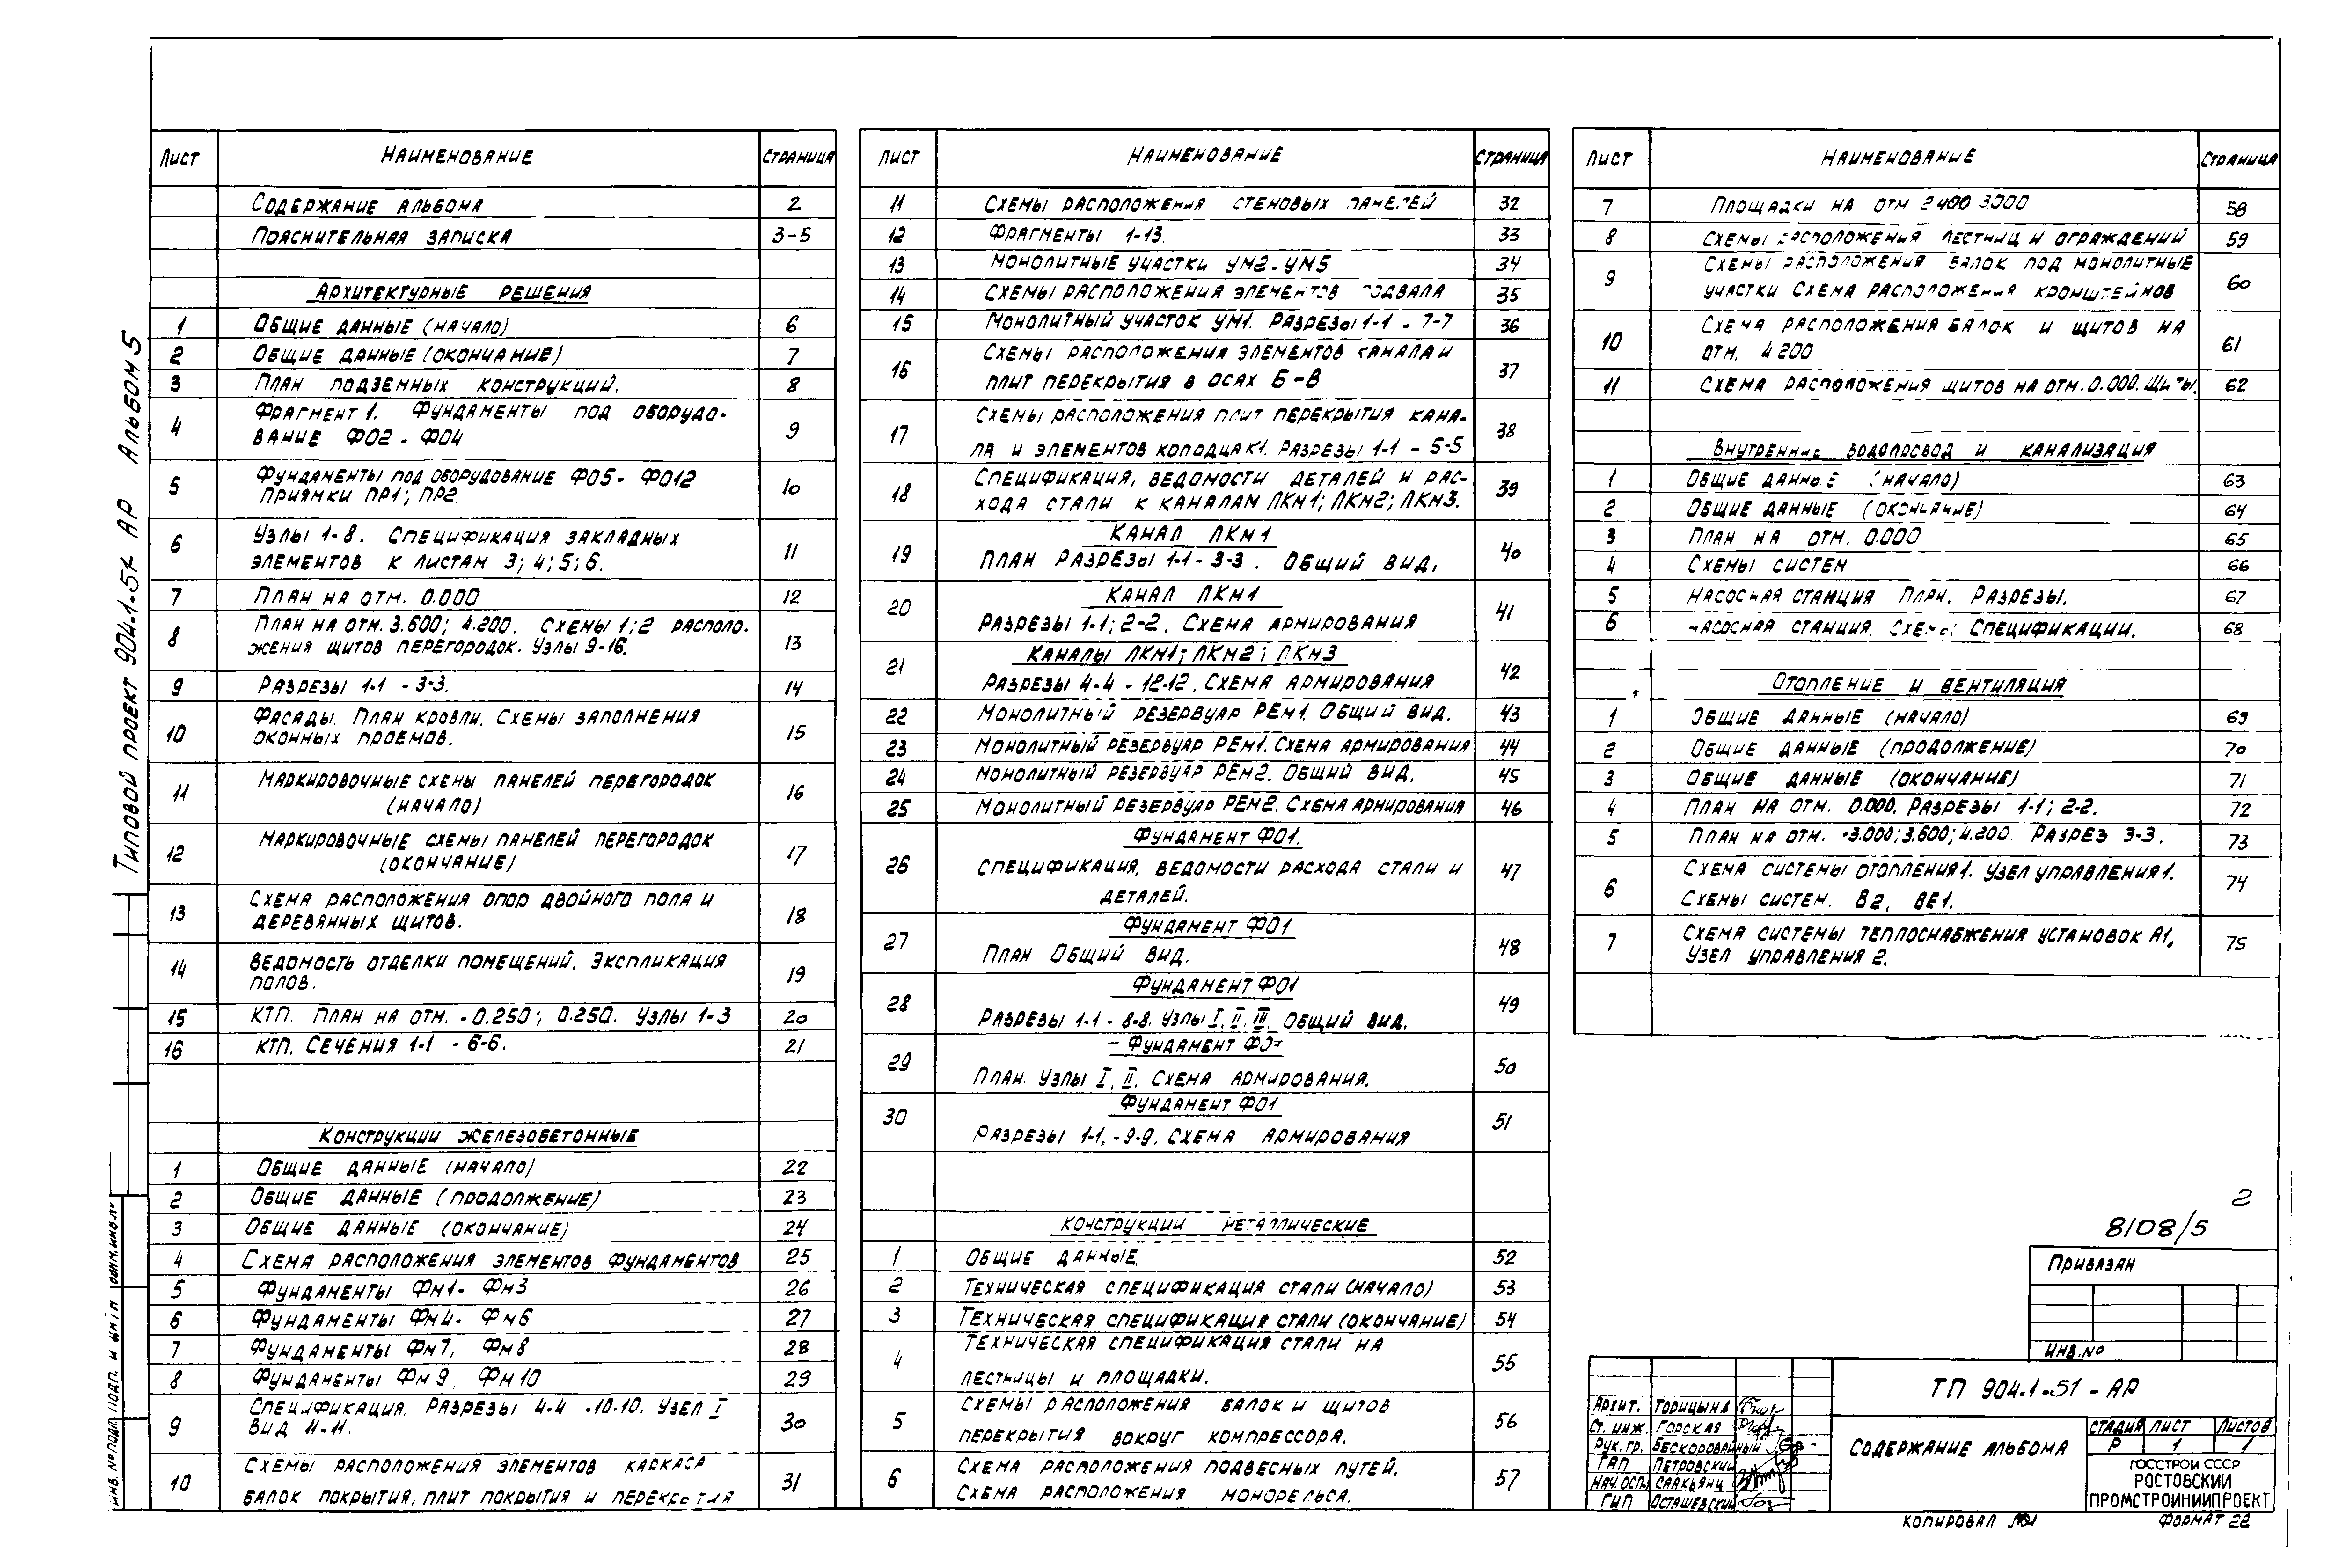 Типовой проект 904-1-51 АР Альбом 5
Лист Наименование Страница
Содержание альбома 2
Пояснительная записка 3-5
Архитектурные решения
1 Общие данные (начало) 6
2 Общие данные (окончание) 7
3 План подземных конструкций. 8
4 Фрагмент 1. Фундаменты под оборудо- 9
вание ФО2 - ФО4
5 Фундаменты под оборудование ФО5 - ФО12 10
Приямки ПР1; ПР2.
6 Узлы 1-8. Спецификация закладных 11
элементов к листам 3; 4; 5; 6.
7 План на отм. 0.000 12
8 План на отм. 3.600; 4.200. Схемы 1; 2 располо- 13
жения щитов перегородок. Узлы 9-16.
9 Разрезы 1-1 - 3-3. 14
10 Фасады. План кровли. Схемы заполнения 15
оконных проемов.
11 Маркировочные схемы панелей перегородок 16
(начало)
12 Маркировочные схемы панелей перегородок 17
(окончание)
13 Схема расположения опор двойного пола и 18
деревянных щитов.
14 Ведомость отделки помещений. Экспликация 19
полов.
15 КТП. План на отм. -0.250; 0.250. Узлы 1-3 20
16 КТП. Сечения 1-1 - 6-6. 21
Конструкции железобетонные
1 Общие данные (начало) 22
2 Общие данные (продолжение) 23
3 Общие данные (окончание) 24
4 Схема расположения элементов фундаментов 25
5 Фундаменты Фм1 - Фм3 26
6 Фундаменты Фм4 - Фм6 27
7 Фундаменты Фм7, Фм8 28
8 Фундаменты Фм9, Фм10 29
9 Спецификация. Разрезы 4-4 - 10-10. Узел I 30
Вид 11-11.
10 Схемы расположения элементов каркаса 31
балок покрытия, плит покрытия и перекрытия
Лист Наименование Страница
11 Схемы расположения стеновых панелей 32
12 Фрагменты 1-13. 33
13 Монолитные участки УМ2 - УМ5 34
14 Схемы расположения элементов подвала 35
15 Монолитный участок УМ1. Разрезы 1-1 - 7-7 36
16 Схемы расположения элементов канала и 37
плит перекрытия в осях Б-В
17 Схемы расположения плит перекрытия кана- 38
ла и элементов колодца К1. Разрезы 1-1 - 5-5
18 Спецификация, ведомости деталей и рас- 39
хода стали к каналам ЛКм1; ЛКм2; ЛКм3.
19 Канал ЛКм1 40
План Разрезы 1-1 - 3-3. Общий вид.
20 Канал ЛКм1 41
Разрезы 1-1; 2-2. Схема армирования
21 Каналы ЛКм1; ЛКм2; ЛКм3 42
Разрезы 4-4 - 12-12. Схема армирования
22 Монолитный резервуар РЕм1. Общий вид. 43
23 Монолитный резервуар РЕм1. Схема армирования 44
24 Монолитный резервуар РЕм2. Общий вид. 45
25 Монолитный резервуар РЕм2. Схема армирования 46
26 Фундамент ФО1. 47
Спецификация, ведомости расхода стали и
деталей.
27 Фундамент ФО1 48
План Общий вид.
28 Фундамент ФО1 49
Разрезы 1-1 - 8-8. Узлы I, II, III. Общий вид.
29 Фундамент 50
План. Узлы I, II. Схема армирования.
30 Фундамент ФО1 51
Разрезы 1-1. - 9-9. Схема армирования
Конструкции металлические
1 Общие данные. 52
2 Техническая спецификация стали (начало) 53
3 Техническая спецификация стали (окончание) 54
4 Техническая спецификация стали на 55
лестницы и площадки.
5 Схемы расположения балок и щитов 56
перекрытия вокруг компрессора.
6 Схема расположения подвесных путей. 57
Схема расположения монорельса.
Лист Наименование Страница
7 Площадки на отм 2400 3000 58
8 Схемы расположения лестниц и ограждений 59
9 Схемы расположения балок под монолитные 60
участки Схема расположения кронштейнов
10 Схема расположения балок и щитов на 61
отм. 4200
11 Схема расположения щитов на отм. 0.000. Щиты. 62
Внутренние водопровод и канализация
1 Общие данные (начало) 63
2 Общие данные (окончание) 64
3 План на отм. 0.000 65
4 Схемы систем 66
5 Насосная станция План. Разрезы. 67
6 Насосная станция. Схемы Спецификации. 68
Отопление и вентиляция
1 Общие данные (начало) 69
2 Общие данные (продолжение) 70
3 Общие данные (окончание) 71
4 План на отм. 0.000. Разрезы 1-1; 2-2. 72
5 План на отм. -3.000; 3.600; 4.200. Разрез 3-3. 73
6 Схема системы отопления 1. Узел управления 1. 74
Схемы систем. В2, ВЕ1.
7 Схема системы теплоснабжения установок А1. 75
Узел управления 2.
2
8108/5
Привязан
Инв. №
ТП 904-1-51 - АР
Архит. Торицына
Ст. инж. Горская
Рук. гр. Бескоровайный
ГАП Петровский
Нач. осп Саакьянц
ГИП Осташевский
Содержание альбома
Стадия Лист Листов
Р 1 1
Госстрой СССР
Ростовский
Промстройниипроект
Копировал
Формат 22
Инв. № подл. Подп. и Взам. инв. №